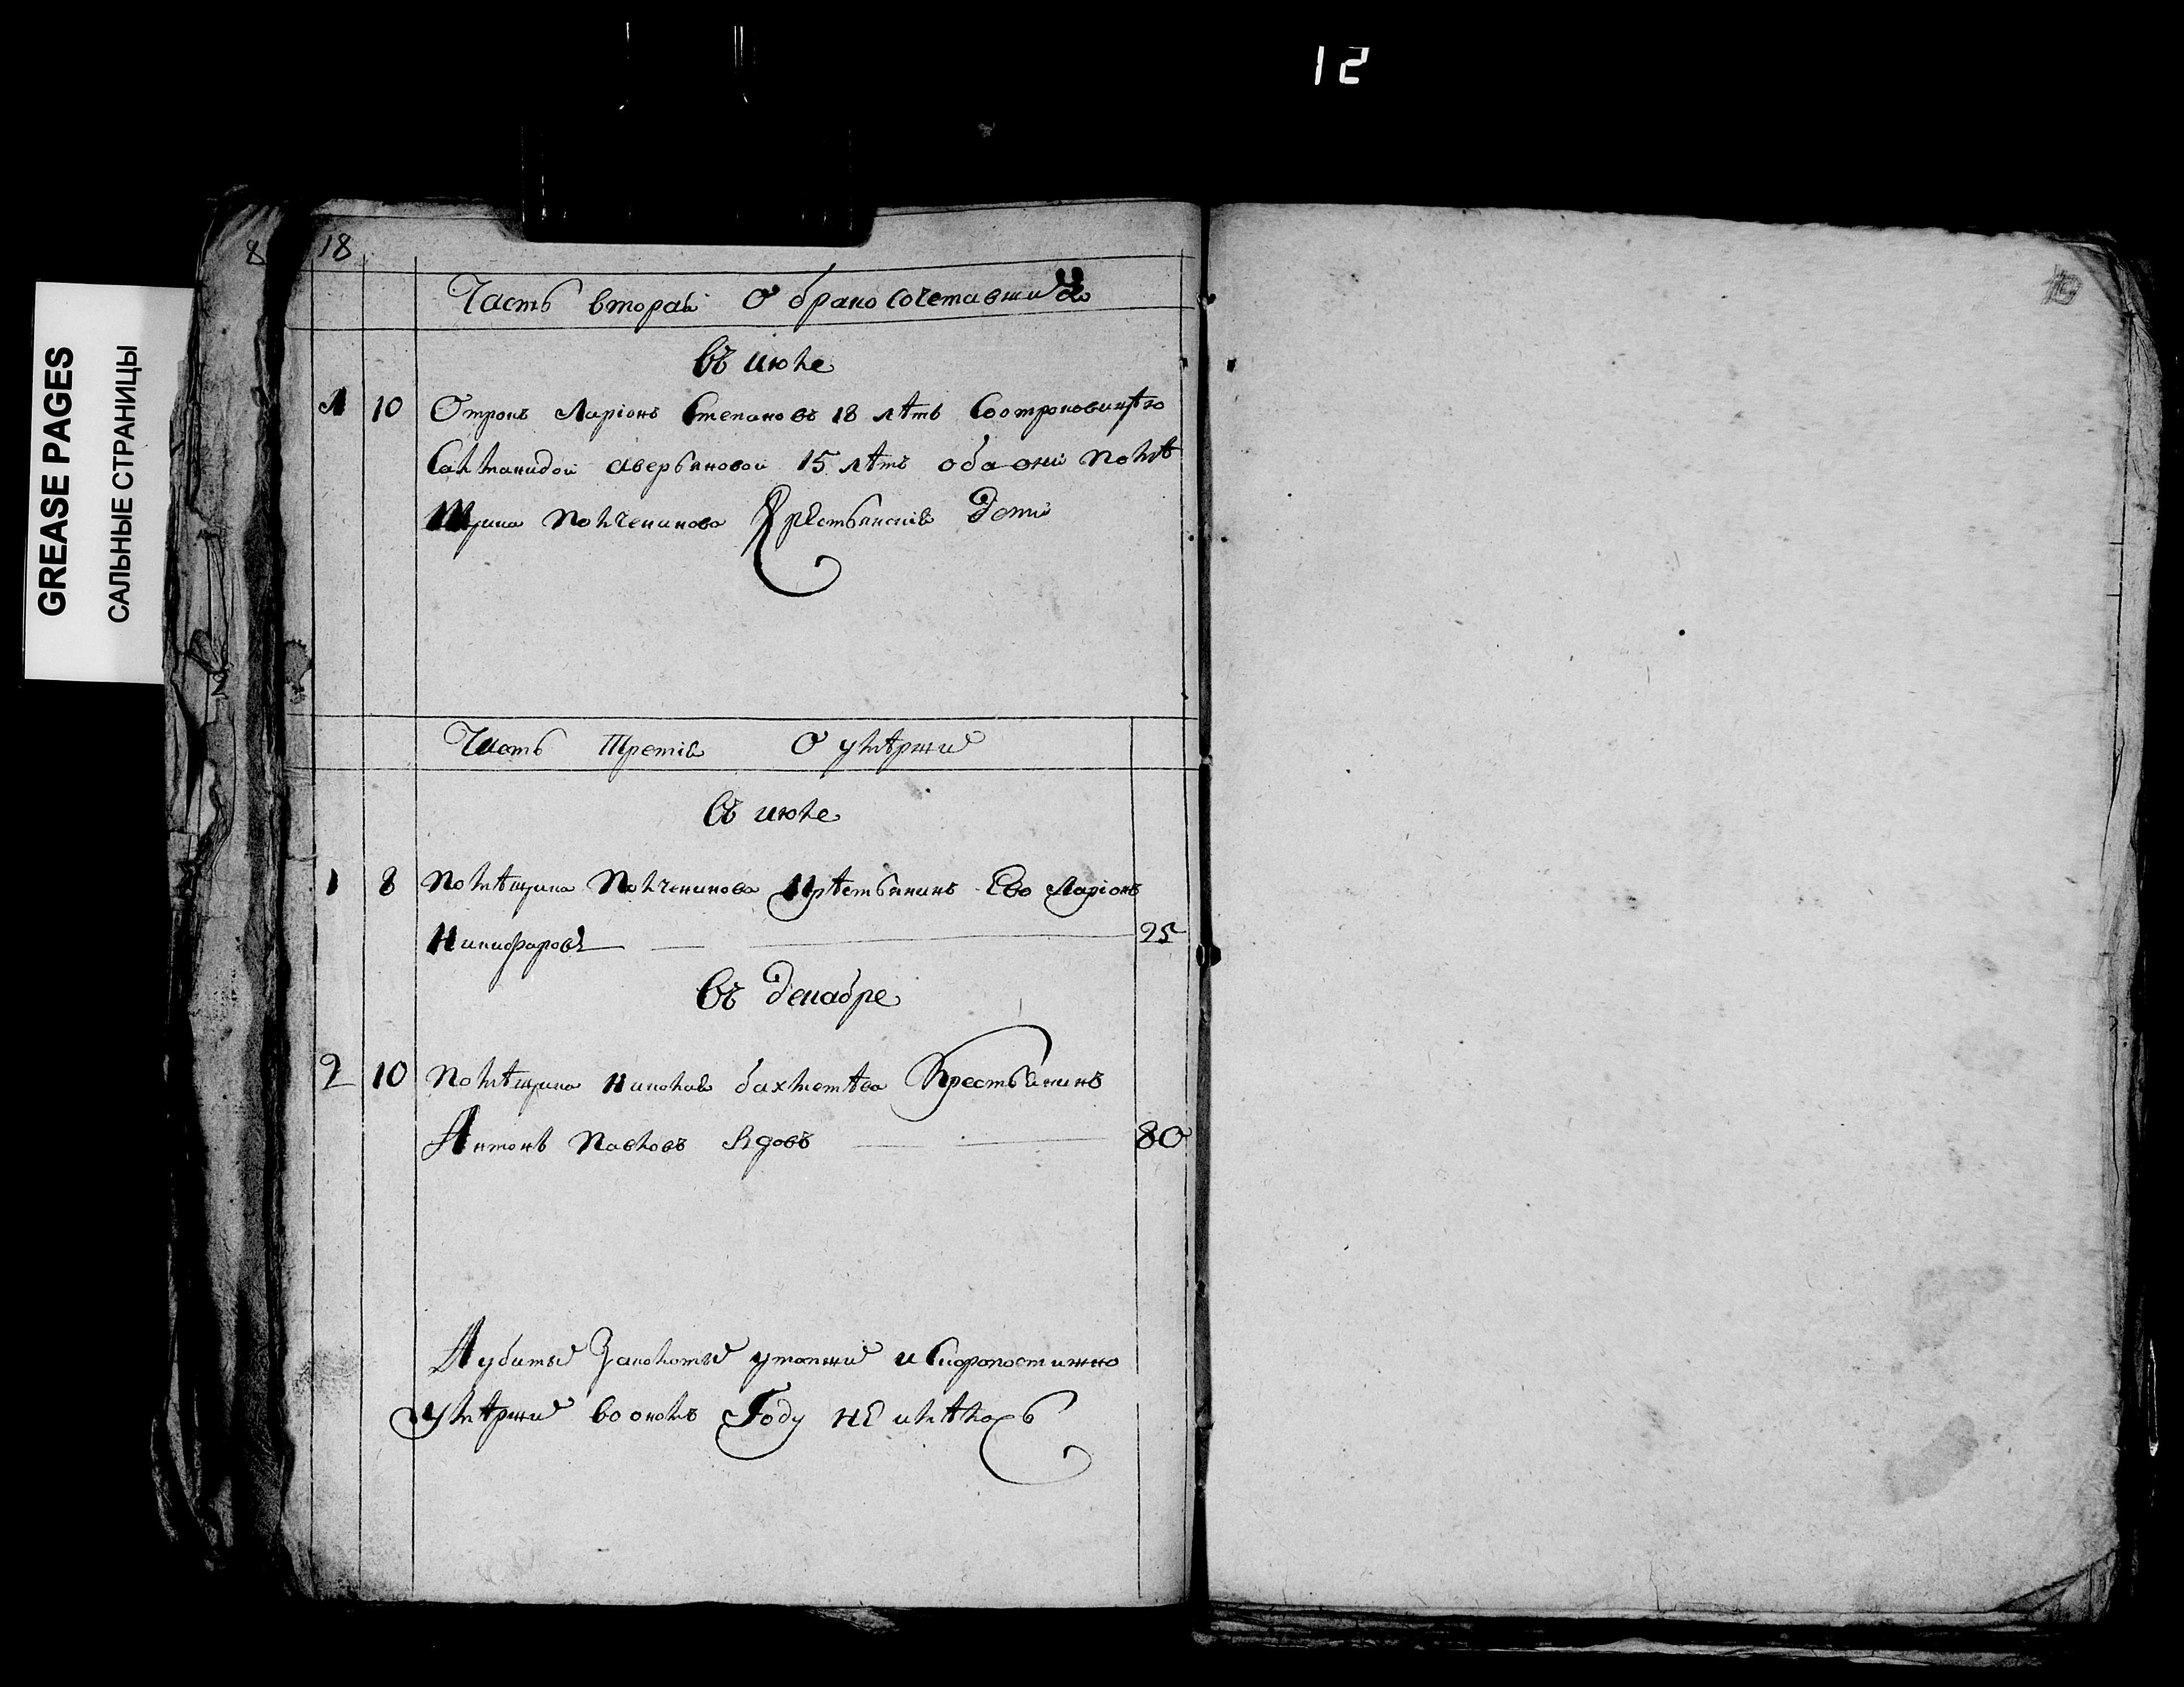 12
GREASE PAGES
САЛЬНЫЕ СТРАНИЦЫ
8 18
Часть вторая О бракосочетавшихся
въ июле
1 10 Отрокъ Ларіонъ Степановъ 18 лѣтъ Соотроковицѣю
Саламанидой аверьяновой 15 лѣтъ оба они помѣ
щика Полченинова Крестьянскія дети
Часть Третія О умѣрши
въ июле
1 8 Помѣщика Полченинова Крѣстьянинъ Ево Ларіонъ
Никифаровъ 25
въ декабре
2 10 Помѣщика николая бахметѣва Крестьянинъ
Антонъ Павловъ вдовъ 80
А убиты заколоты утопши и Скоропостижно
умѣрши во ономъ Году не имѣлось